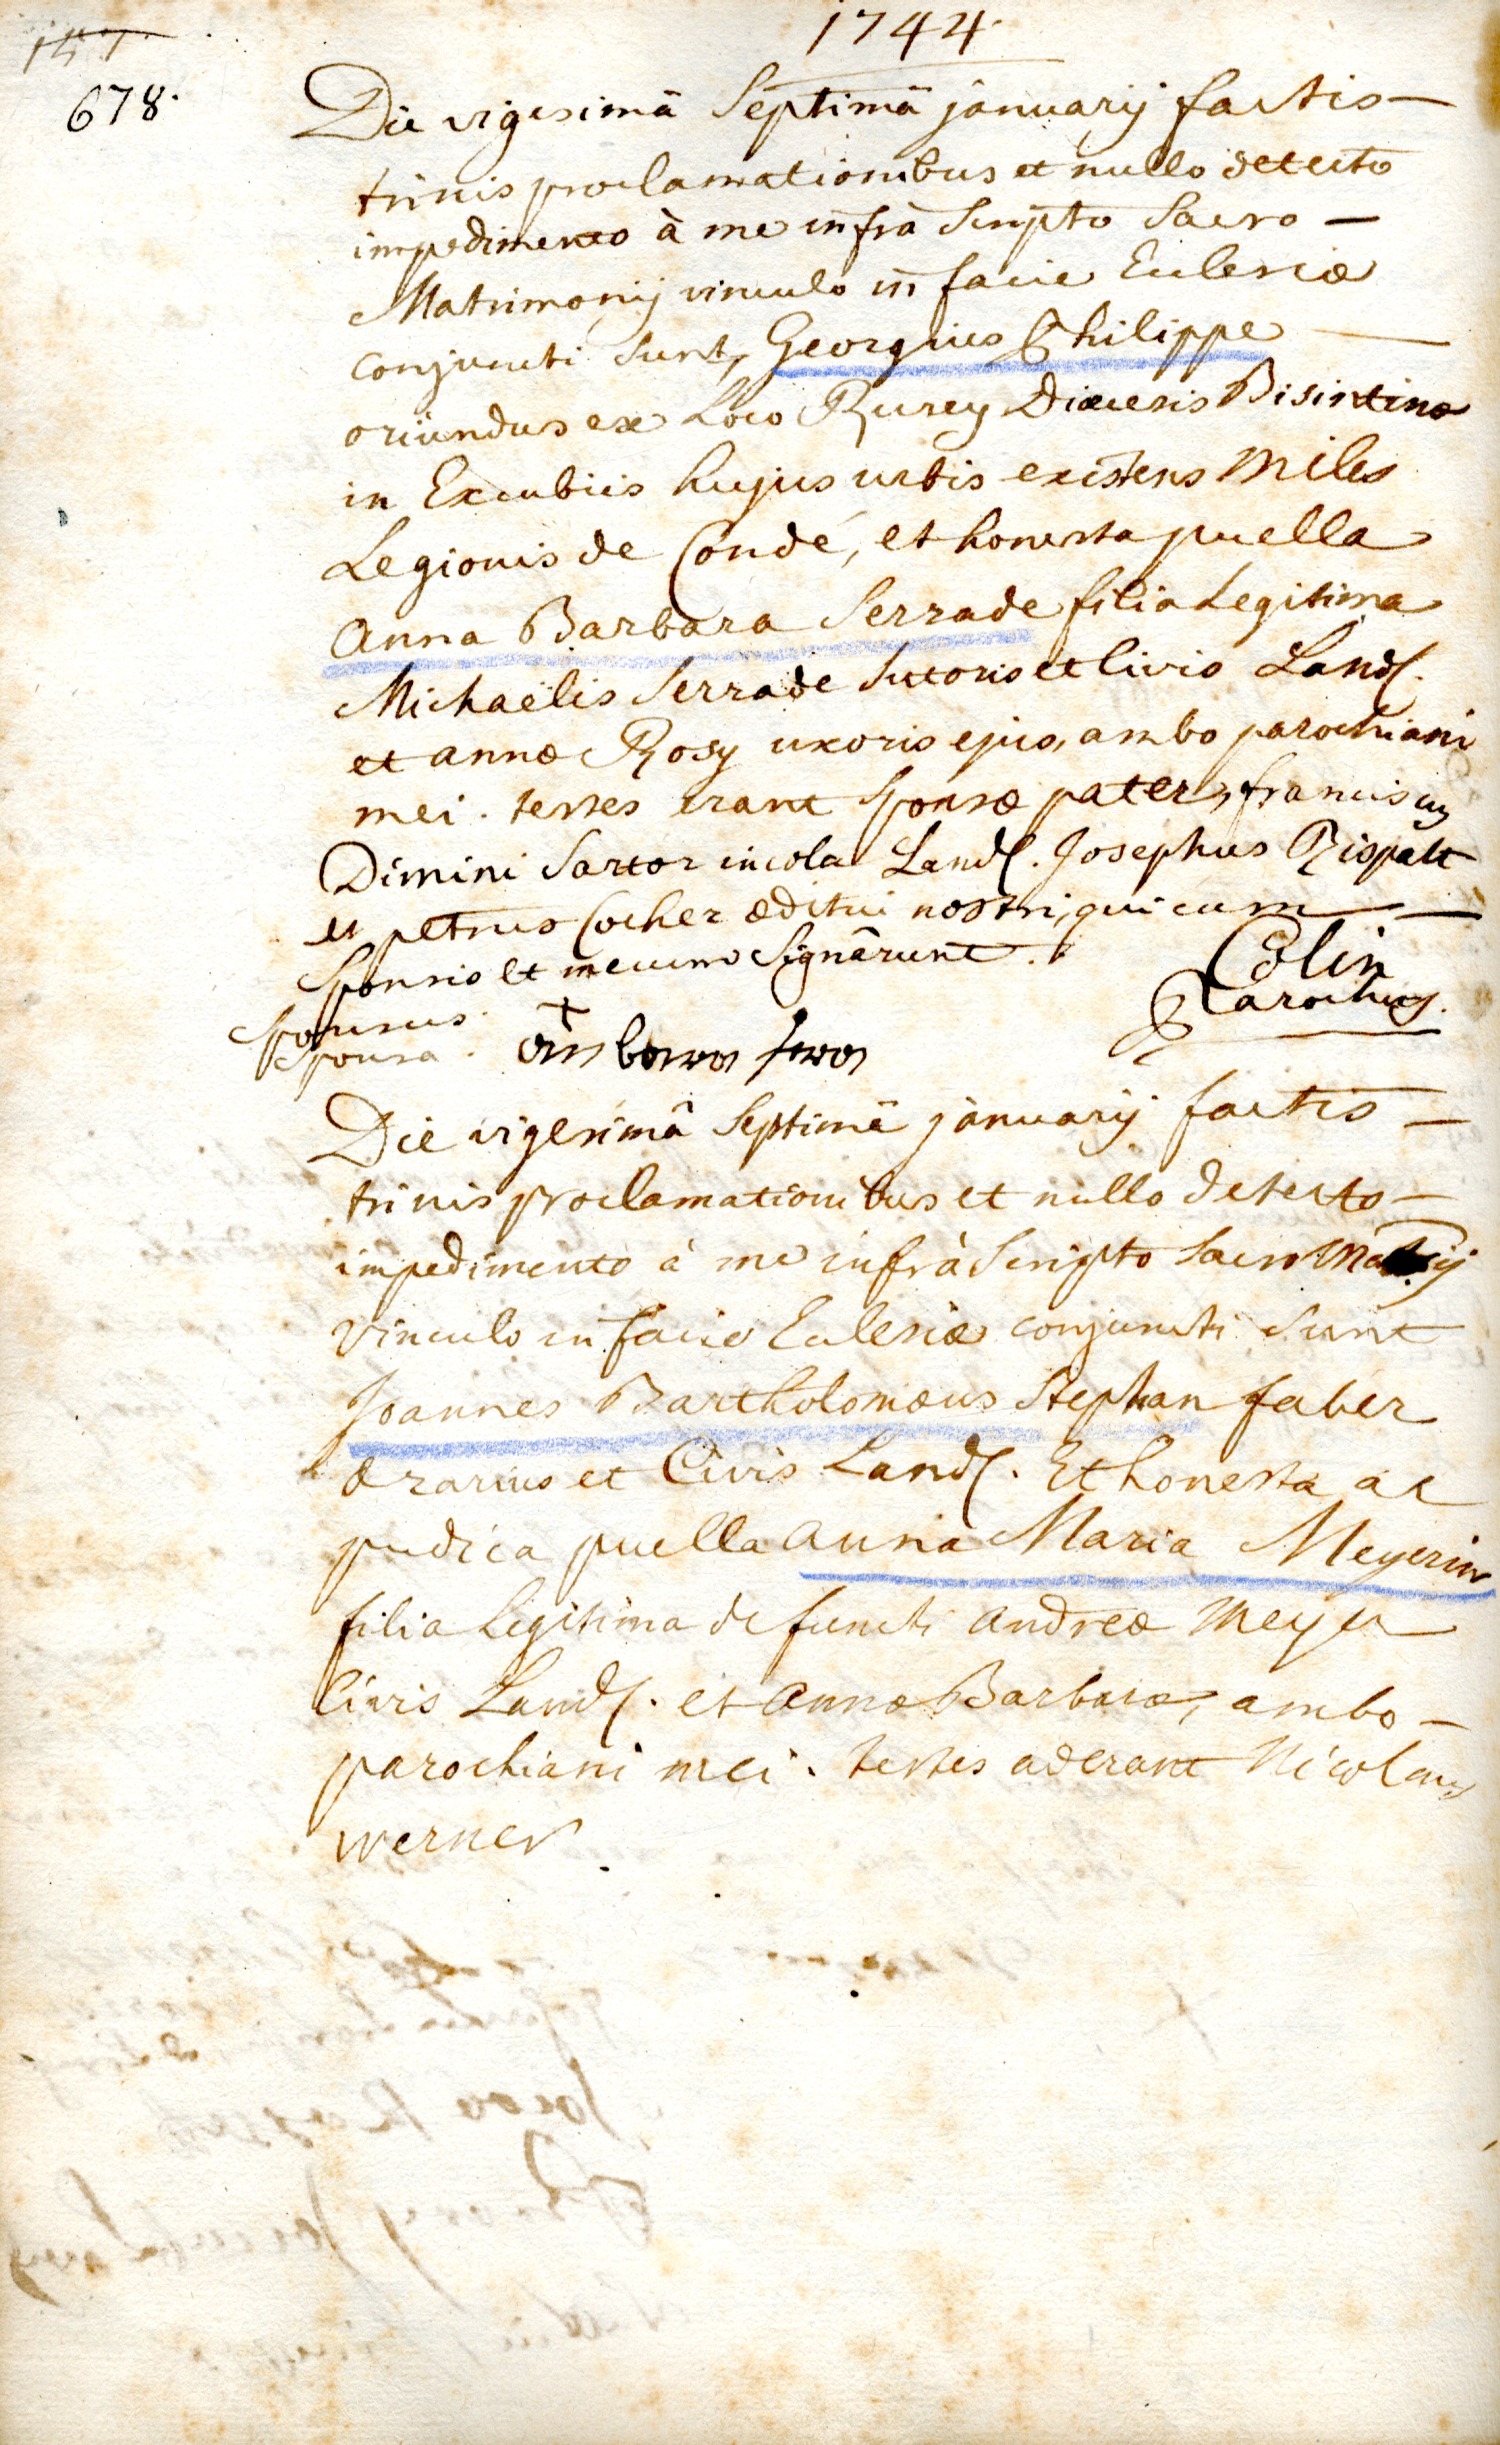 1744.
678.
Die vigesimâ Septimâ januarij factis —
trinis proclamationibus et nullo detecto
impedimento à me infrà Scripto Sacro —
Matrimonij vinculo in facie Ecclesiæ
conjuncti Sunt, Georgius Philippe —
oriundus ex Loco Rurey Diœcesis Bisintinæ
in Excubiis hujus urbis existens Miles
Legionis de Condé, et honesta puella
Anna Barbara Serrade filia Legitima
Michaëlis Serrade Sutoris et Civis Land.
et annæ Rosy uxoris ejus, ambo parochiani
mei. testes erant Sponsæ pater, franciscus
Dimini Sartor incola Land. Josephus Rispalt
et petrus Cocher æditui nostri, qui cum —
Sponsis et mecum Signârunt.
Colin
Parochus.
Sponsus. +
Sponsa.
Die vigesimâ Septimâ januarij factis —
trinis proclamationibus et nullo detecto —
impedimento à me infrà Scripto Sacro
vinculo in facie Ecclesiæ conjuncti Sunt
Joannes Bartholomæus Stephan faber
ærarius et Civis Land. Et honesta ac
pudica puella Anna Maria Meyerin
filia Legitima defuncti Andreæ Meyer
Civis Land. et Annæ Barbaræ, ambo —
parochiani mei. testes aderant Nicolaus
werner